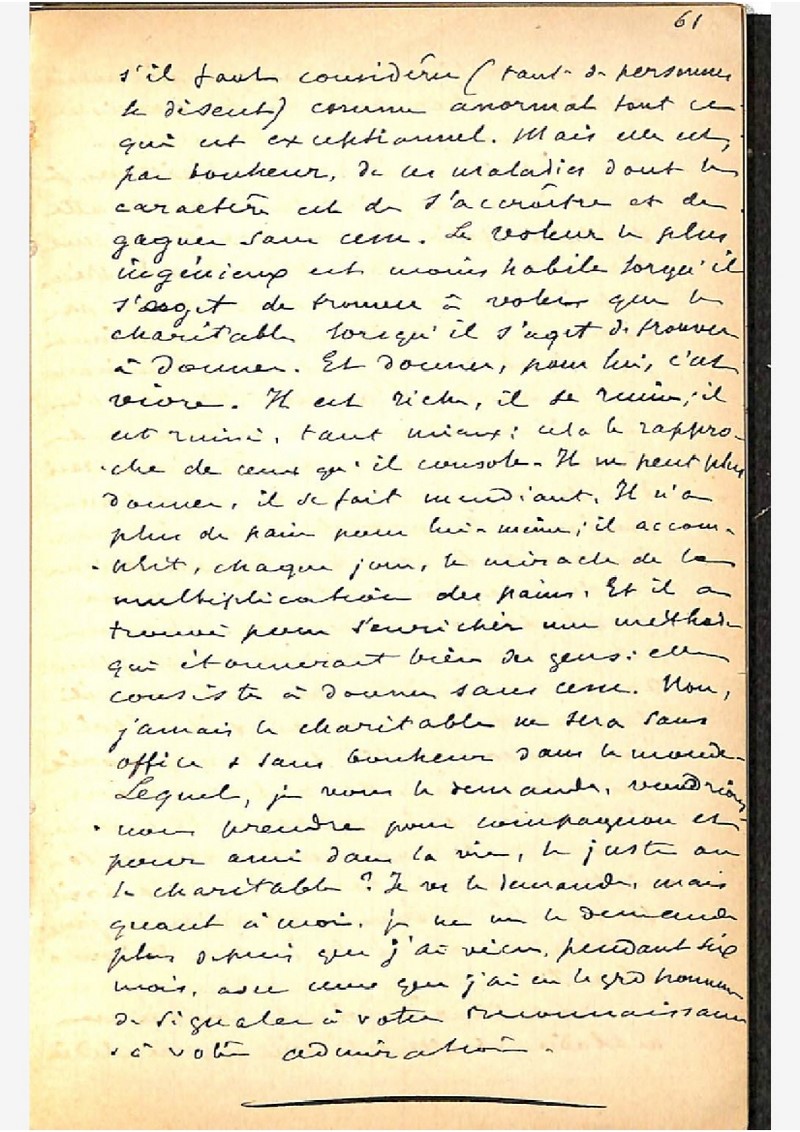 61
s'il faut considérer (tant de personnes
le disent) comme anormal tout ce
qui est exceptionnel. Mais elle est,
par bonheur, de ces maladies dont le
caractère est de s'accroître et de
gagner sans cesse. Le voleur le plus
ingénieux est moins habile lorsqu'il
s'agit de trouver à voler que le
charitable lorsqu'il s'agit de trouver
à donner. Et donner, pour lui, c'est
vivre. Il est riche, il se ruine; il
est ruiné, tant mieux: cela le rappro-
che de ceux qu'il console. Il ne peut plus
donner, il se fait mendiant. Il n'a
plus de pain pour lui-même; il accom-
plit, chaque jour, le miracle de la
multiplication des pains. Et il a
trouvé pour s'enrichir une méthode
qui étonnerait bien des gens: elle
consiste à donner sans cesse. Non,
jamais le charitable ne sera sans
office & sans bonheur dans le monde.
Lequel, je vous le demande, voudrions
nous prendre pour compagnon et
pour ami dans la vie, le juste ou
le charitable? Je vs le demande, mais
quant à moi, je ne me le demande
plus depuis que j'ai vécu, pendant six
mois, avec ceux que j'ai eu le grd honneur
de signaler à votre reconnaissance
& à votre admiration.